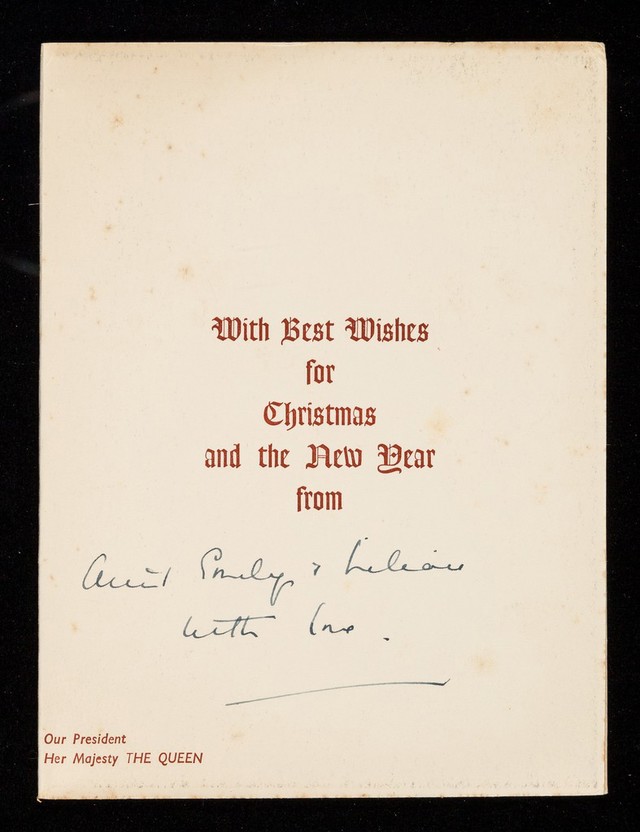 With Best Wishes
for
Christmas
and the New Year
from
Aunt Emily & Lilian
with love.
Our President
Her Majesty THE QUEEN